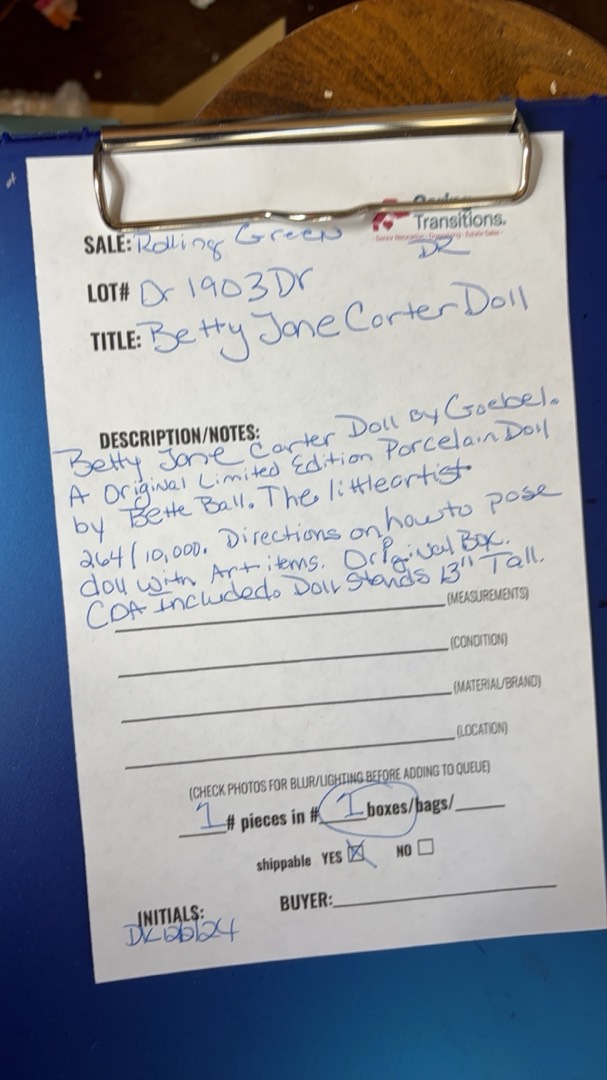 Transitions.
SALE: Rolling Green DR
LOT# Dr 1903 Dr
TITLE: Betty Jane Carter Doll
DESCRIPTION/NOTES:
Betty Jane Carter Doll By Goebel.
A Original Limited Edition Porcelain Doll
by Bette Ball. The little artist
264/10,000. Directions on how to pose
doll with Art items. Original Box.
COA Included. Doll Stands 13" Tall.
(MEASUREMENTS)
(CONDITION)
(MATERIAL/BRAND)
(LOCATION)
(CHECK PHOTOS FOR BLUR/LIGHTING BEFORE ADDING TO QUEUE)
1 # pieces in # 1 boxes/bags/
shippable YES ☒ NO ☐
INITIALS: BUYER: